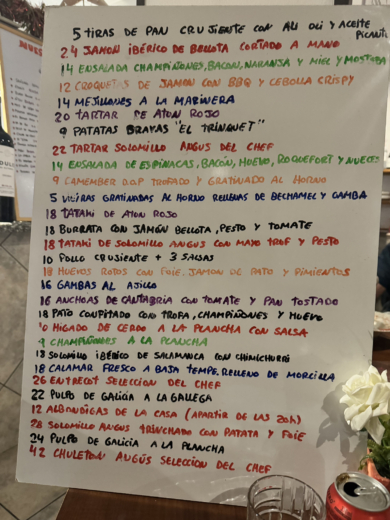 5 TIRAS DE PAN CRUJIENTE CON ALI OLI y ACEITE PICANTE
24 JAMON IBÉRICO DE BELLOTA CORTADO A MANO
14 ENSALADA CHAMPIÑONES, BACON, NARANJA y MIEL y MOSTAZA
12 CROQUETAS DE JAMON CON BBQ y CEBOLLA CRISPY
14 MEJILLONES A LA MARINERA
20 TARTAR DE ATUN ROJO
9 PATATAS BRAVAS "EL TRINQUET"
22 TARTAR SOLOMILLO ANGUS DEL CHEF
14 ENSALADA DE ESPINACAS, BACON, HUEVO, ROQUEFORT y NUECES
9 CAMEMBER D.O.P TRUFADO y GRATINADO AL HORNO
5 VIEIRAS GRATINADAS AL HORNO RELLENAS DE BECHAMEL y GAMBA
18 TATAKI DE ATUN ROJO
18 BURRATA CON JAMÓN BELLOTA, PESTO y TOMATE
18 TATAKI DE SOLOMILLO ANGUS CON MAYO TRUF y PESTO
10 POLLO CRUJIENTE + 3 SALSAS
18 HUEVOS ROTOS CON FOIE, JAMON DE PATO y PIMIENTOS
16 GAMBAS AL AJILLO
16 ANCHOAS DE CANTABRIA CON TOMATE y PAN TOSTADO
18 PATO CONFITADO CON TRUFA, CHAMPIÑONES y HUEVO
10 HIGADO DE CERDO A LA PLANCHA CON SALSA
9 CHAMPIÑONES A LA PLANCHA
18 SOLOMILLO IBÉRICO DE SALAMANCA CON CHIMICHURRI
18 CALAMAR FRESCO A BAJA TEMPE. RELLENO DE MORCILLA
26 ENTRECOT SELECCION DEL CHEF
22 PULPO DE GALICIA A LA GALLEGA
12 ALBONDIGAS DE LA CASA (APARTIR DE LAS 20H)
28 SOLOMILLO ANGUS TRINCHADO CON PATATA y FOIE
24 PULPO DE GALICIA A LA PLANCHA
42 CHULETON ANGÜS SELECCION DEL CHEF